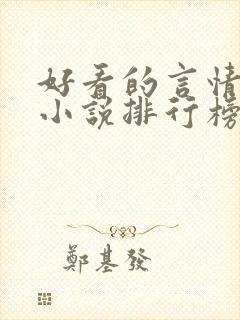 好看的言情
小说排行榜
鄭基發